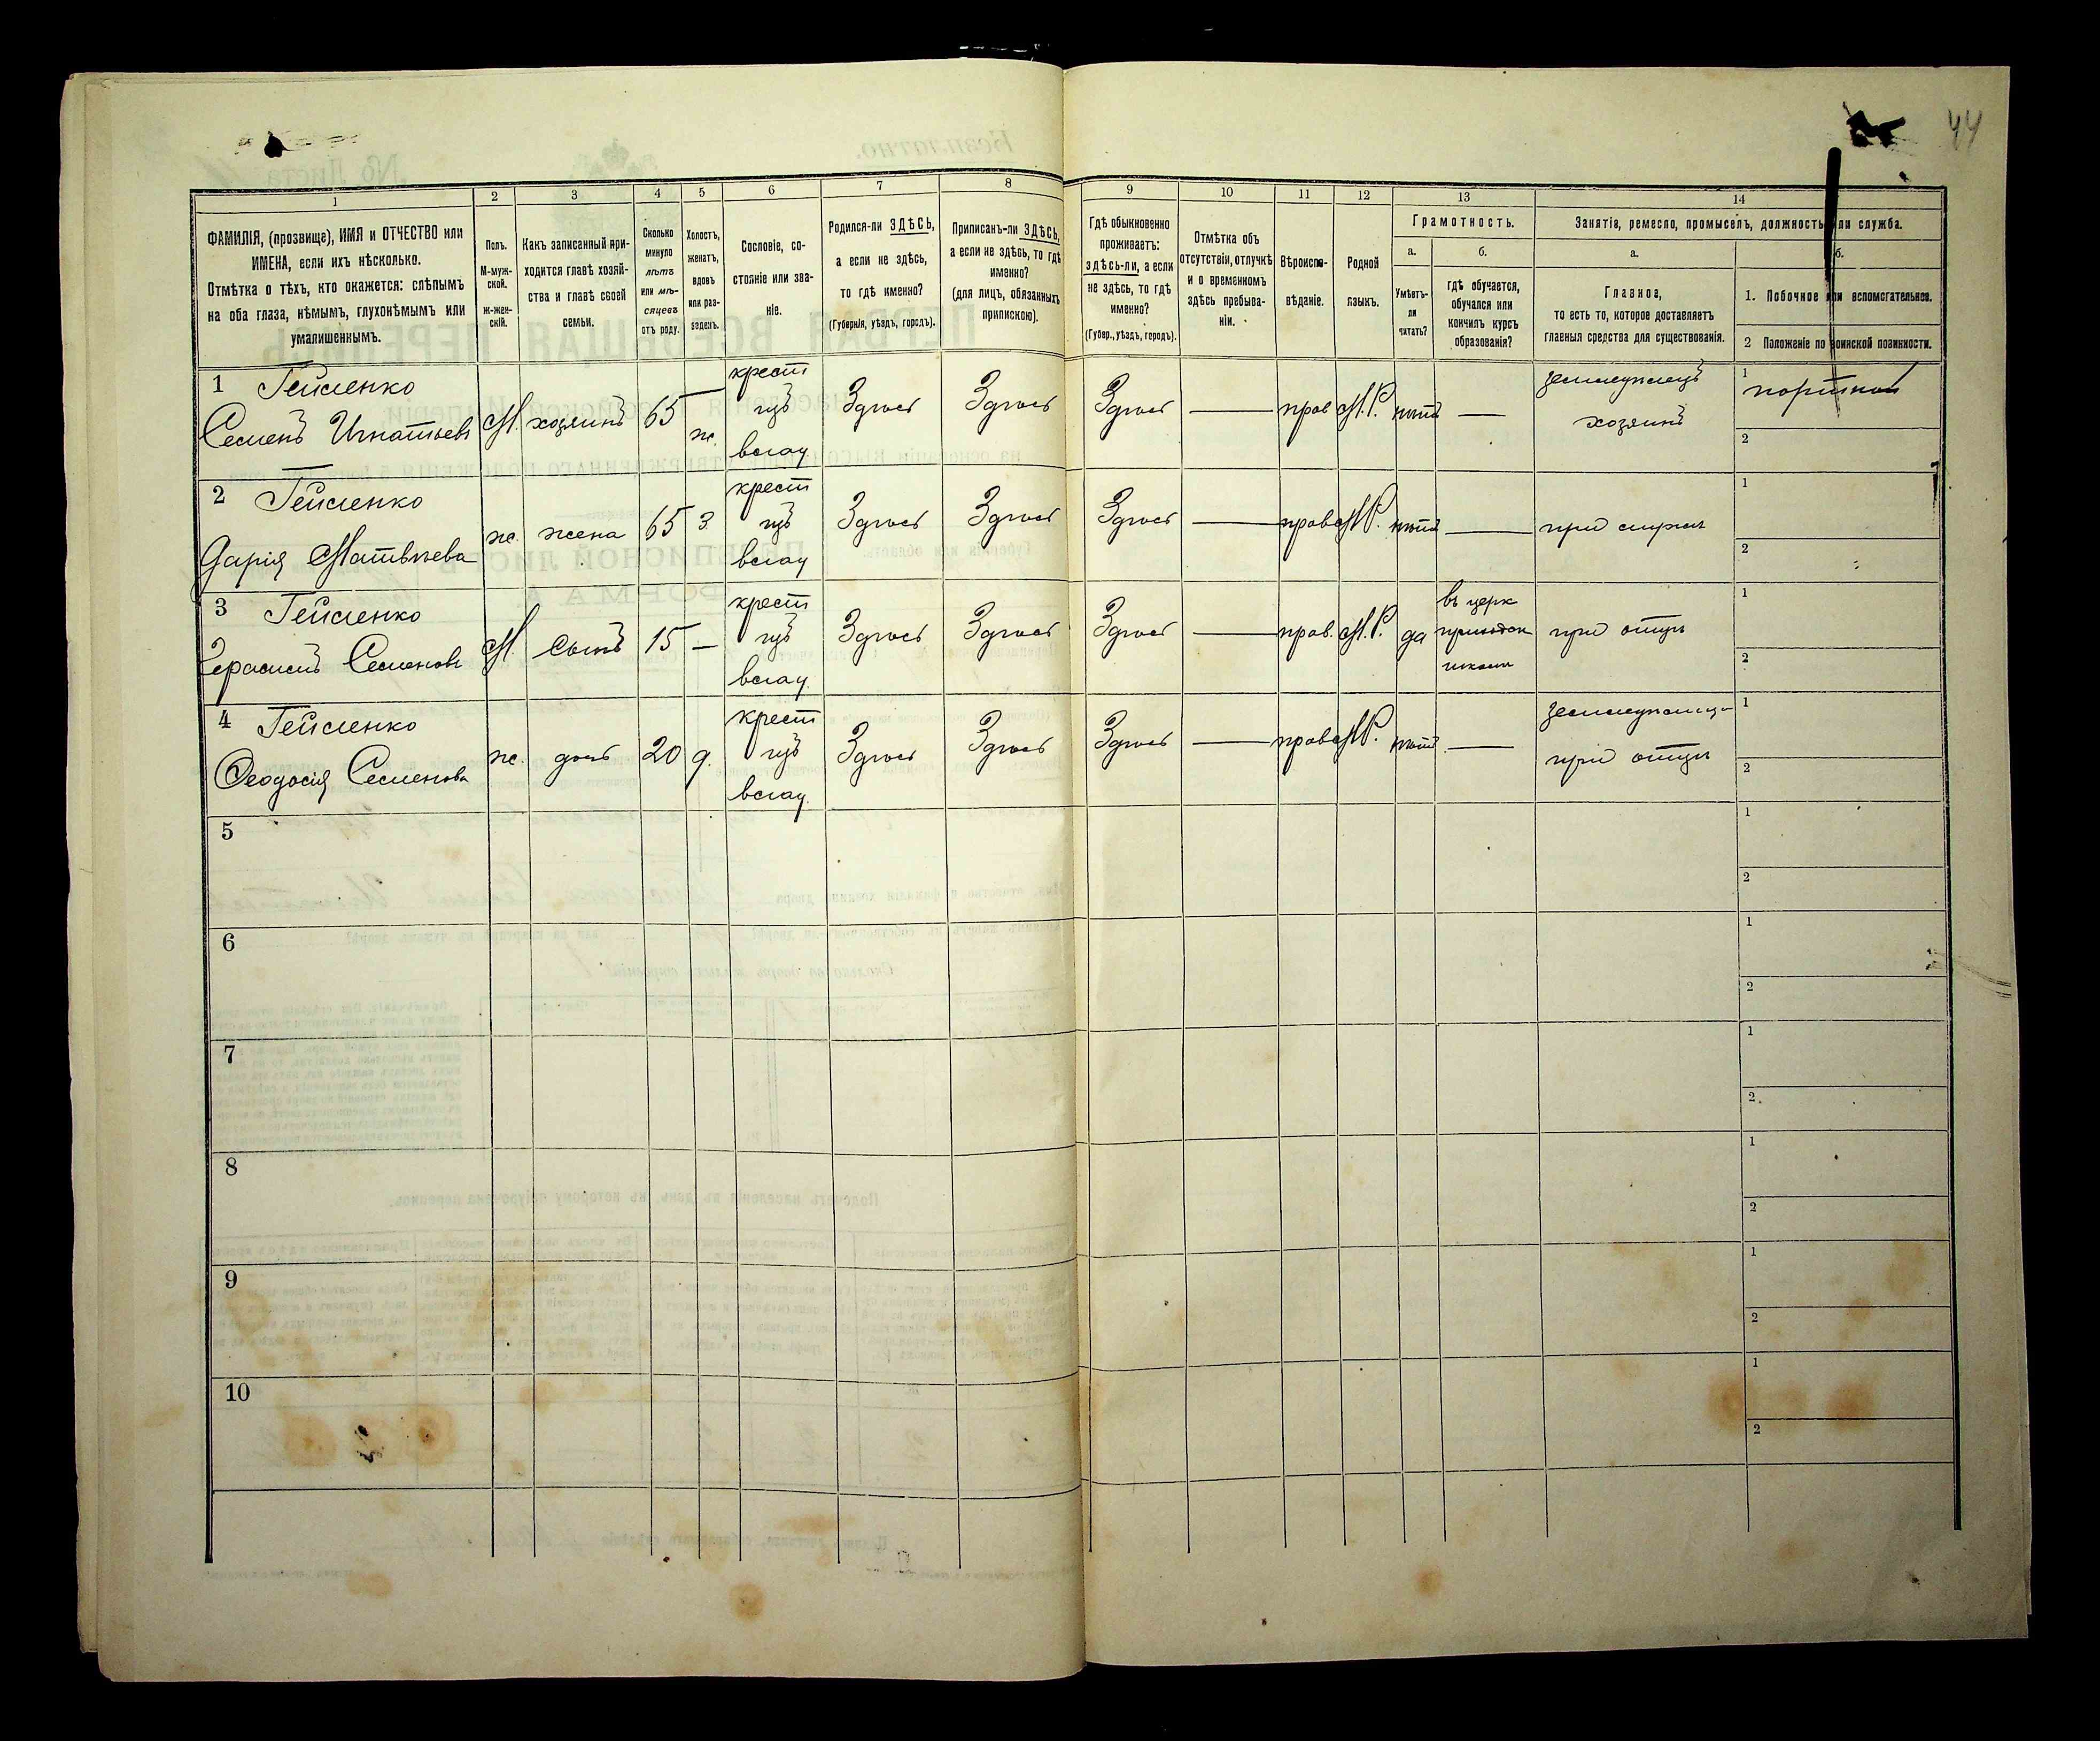 44
1 2 3 4 5 6 7 8 9 10 11 12 13 14
ФАМИЛІЯ, (прозвище), ИМЯ и ОТЧЕСТВО или
ИМЕНА, если ихъ нѣсколько.
Отмѣтка о тѣхъ, кто окажется: слѣпымъ
на оба глаза, нѣмымъ, глухонѣмымъ или
умалишеннымъ.
Полъ.
М-муж-
ской.
ж-жен-
скій.
Какъ записанный при-
ходится главѣ хозяй-
ства и главѣ своей
семьи.
Сколько
минуло
лѣтъ
или мѣ-
сяцевъ
отъ роду.
Холостъ,
женатъ,
вдовъ
или раз-
веденъ.
Сословіе, со-
стояніе или зва-
ніе.
Родился-ли ЗДѢСЬ,
а если не здѣсь,
то гдѣ именно?
(Губернія, уѣздъ, городъ).
Приписанъ-ли ЗДѢСЬ,
а если не здѣсь, то гдѣ
именно?
(для лицъ, обязанныхъ
припискою).
Гдѣ обыкновенно
проживаетъ:
здѣсь-ли, а если
не здѣсь, то гдѣ
именно?
(Губер., уѣздъ, городъ).
Отмѣтка объ
отсутствіи, отлучкѣ
и о временномъ
здѣсь пребыва-
ніи.
Вѣроиспо-
вѣданіе.
Родной
языкъ.
Грамотность.
а.
Умѣетъ-
ли
читать?
б.
гдѣ обучается,
обучался или
кончилъ курсъ
образованія?
Занятіе, ремесло, промыселъ, должность или служба.
а.
Главное,
то есть то, которое доставляетъ
главныя средства для существованія.
б.
1. Побочное или вспомогательное.
2 Положеніе по воинской повинности.
1 Гейленко
Семенъ Игнатьевъ
М. хозяинъ 65 ж.
крест
изъ
влад
Здѣсь Здѣсь Здѣсь — прав М.Р. нѣтъ —
хозяинъ
1 портной
2
2 Гейленко
Дарія Матвѣева
ж. жена 65 З
крест
изъ
влад
Здѣсь Здѣсь Здѣсь — прав М.Р. нѣтъ —
при мужѣ
1
2
3 Гейленко
Герасимъ Семеновъ
М. сынъ 15 —
крест
изъ
влад
Здѣсь Здѣсь Здѣсь — прав. М.Р. да
въ церк
приходск
школѣ
при отцѣ
1
2
4 Гейленко
Ѳеодосія Семенова
ж. дочь 20 д.
крест
изъ
влад.
Здѣсь Здѣсь Здѣсь — прав М.Р. нѣтъ —
при отцѣ
1
2
5
1
2
6
1
2
7
1
2
8
1
2
9
1
2
10
1
2